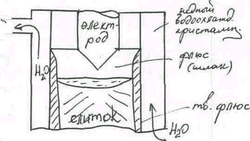 элект-
род
медный
водоохлажд.
кристаллиз.
H₂O
флюс
(шлак)
слиток
тв. флюс
H₂O